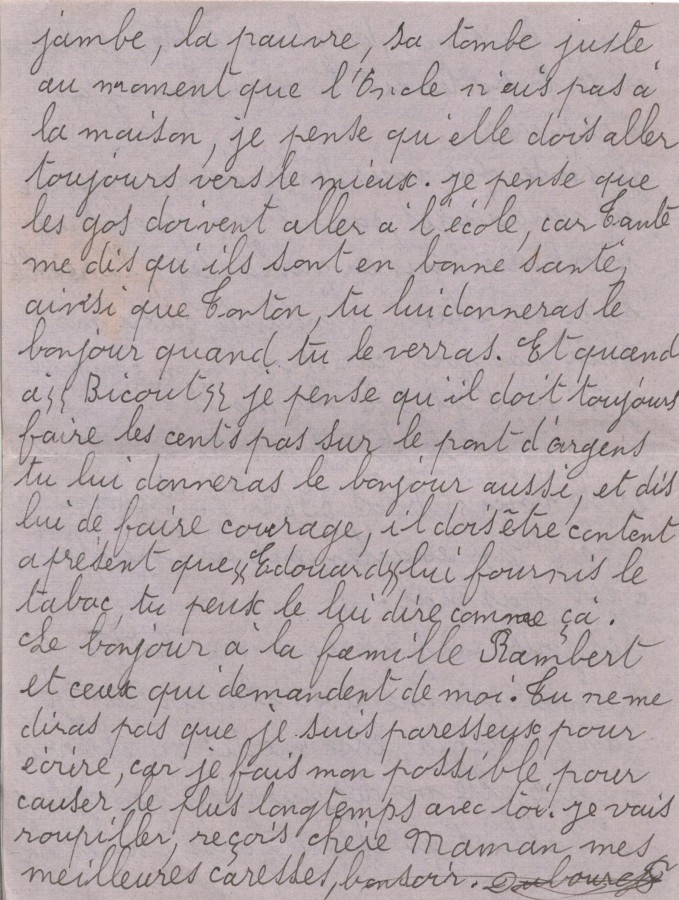 jambe, la pauvre, sa tombe juste
au moment que l'Oncle n'ais pas à
la maison, je pense qu'elle dois aller
toujours vers le mieux. je pense que
les gos doivent aller à l'école, car Tante
me dis qu'ils sont en bonne santé,
ainsi que Tonton, tu lui donneras le
bonjour quand tu le verras. Et quand
à "Bicout" je pense qu'il doit toujours
faire les cents pas sur le pont d'argens
tu lui donneras le bonjour aussi, et dis
lui de faire courage, il dois être content
aprésent que "Edouard" lui fournis le
tabac, tu peux le lui dire comme ça.
Le bonjour à la famille Rambert
et ceux qui demandent de moi. Tu ne me
diras pas que je suis paresseux pour
écrire, car je fais mon possible pour
causer le plus longtemps avec toi. je vais
roupiller, reçois chère Maman mes
meilleures caresses, bonsoir.